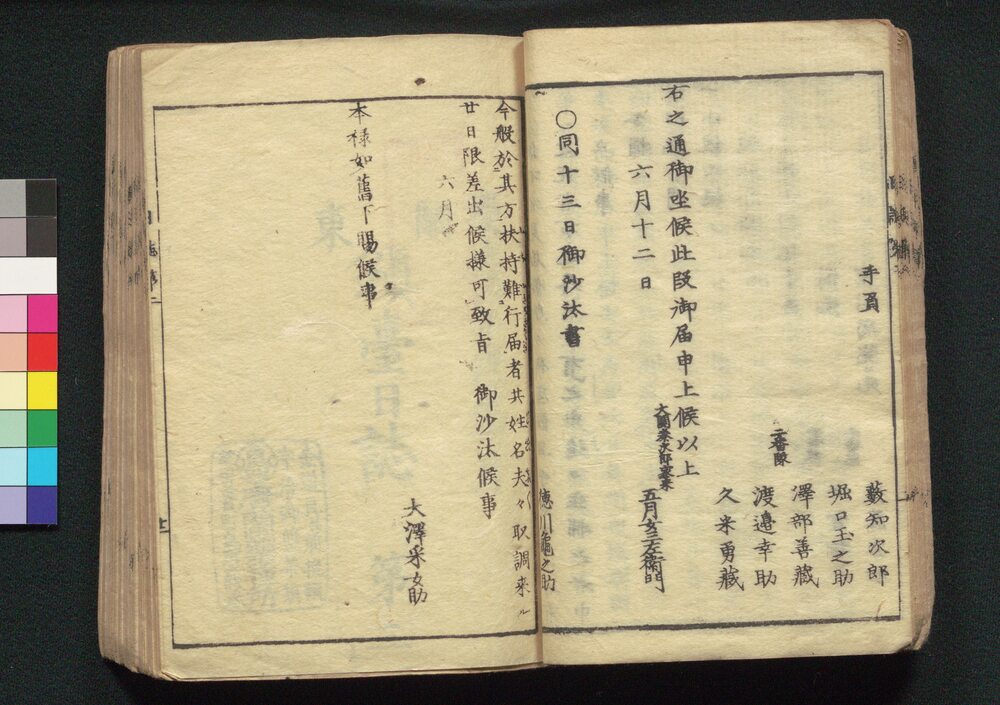 手負
藪知次郎
堀口玉之助
二番隊
澤部善藏
渡邉幸助
久米勇藏
右之通御坐候此段御届申上候以上
六月十二日
五月女三左衛門
〇同十三日御沙汰書
徳川龜之助
今般於其方扶持難行届者共姓名夫々取調来ル
廿日限差出候様可致旨 御沙汰候事
六月
大澤采女助
本禄如舊下賜候事